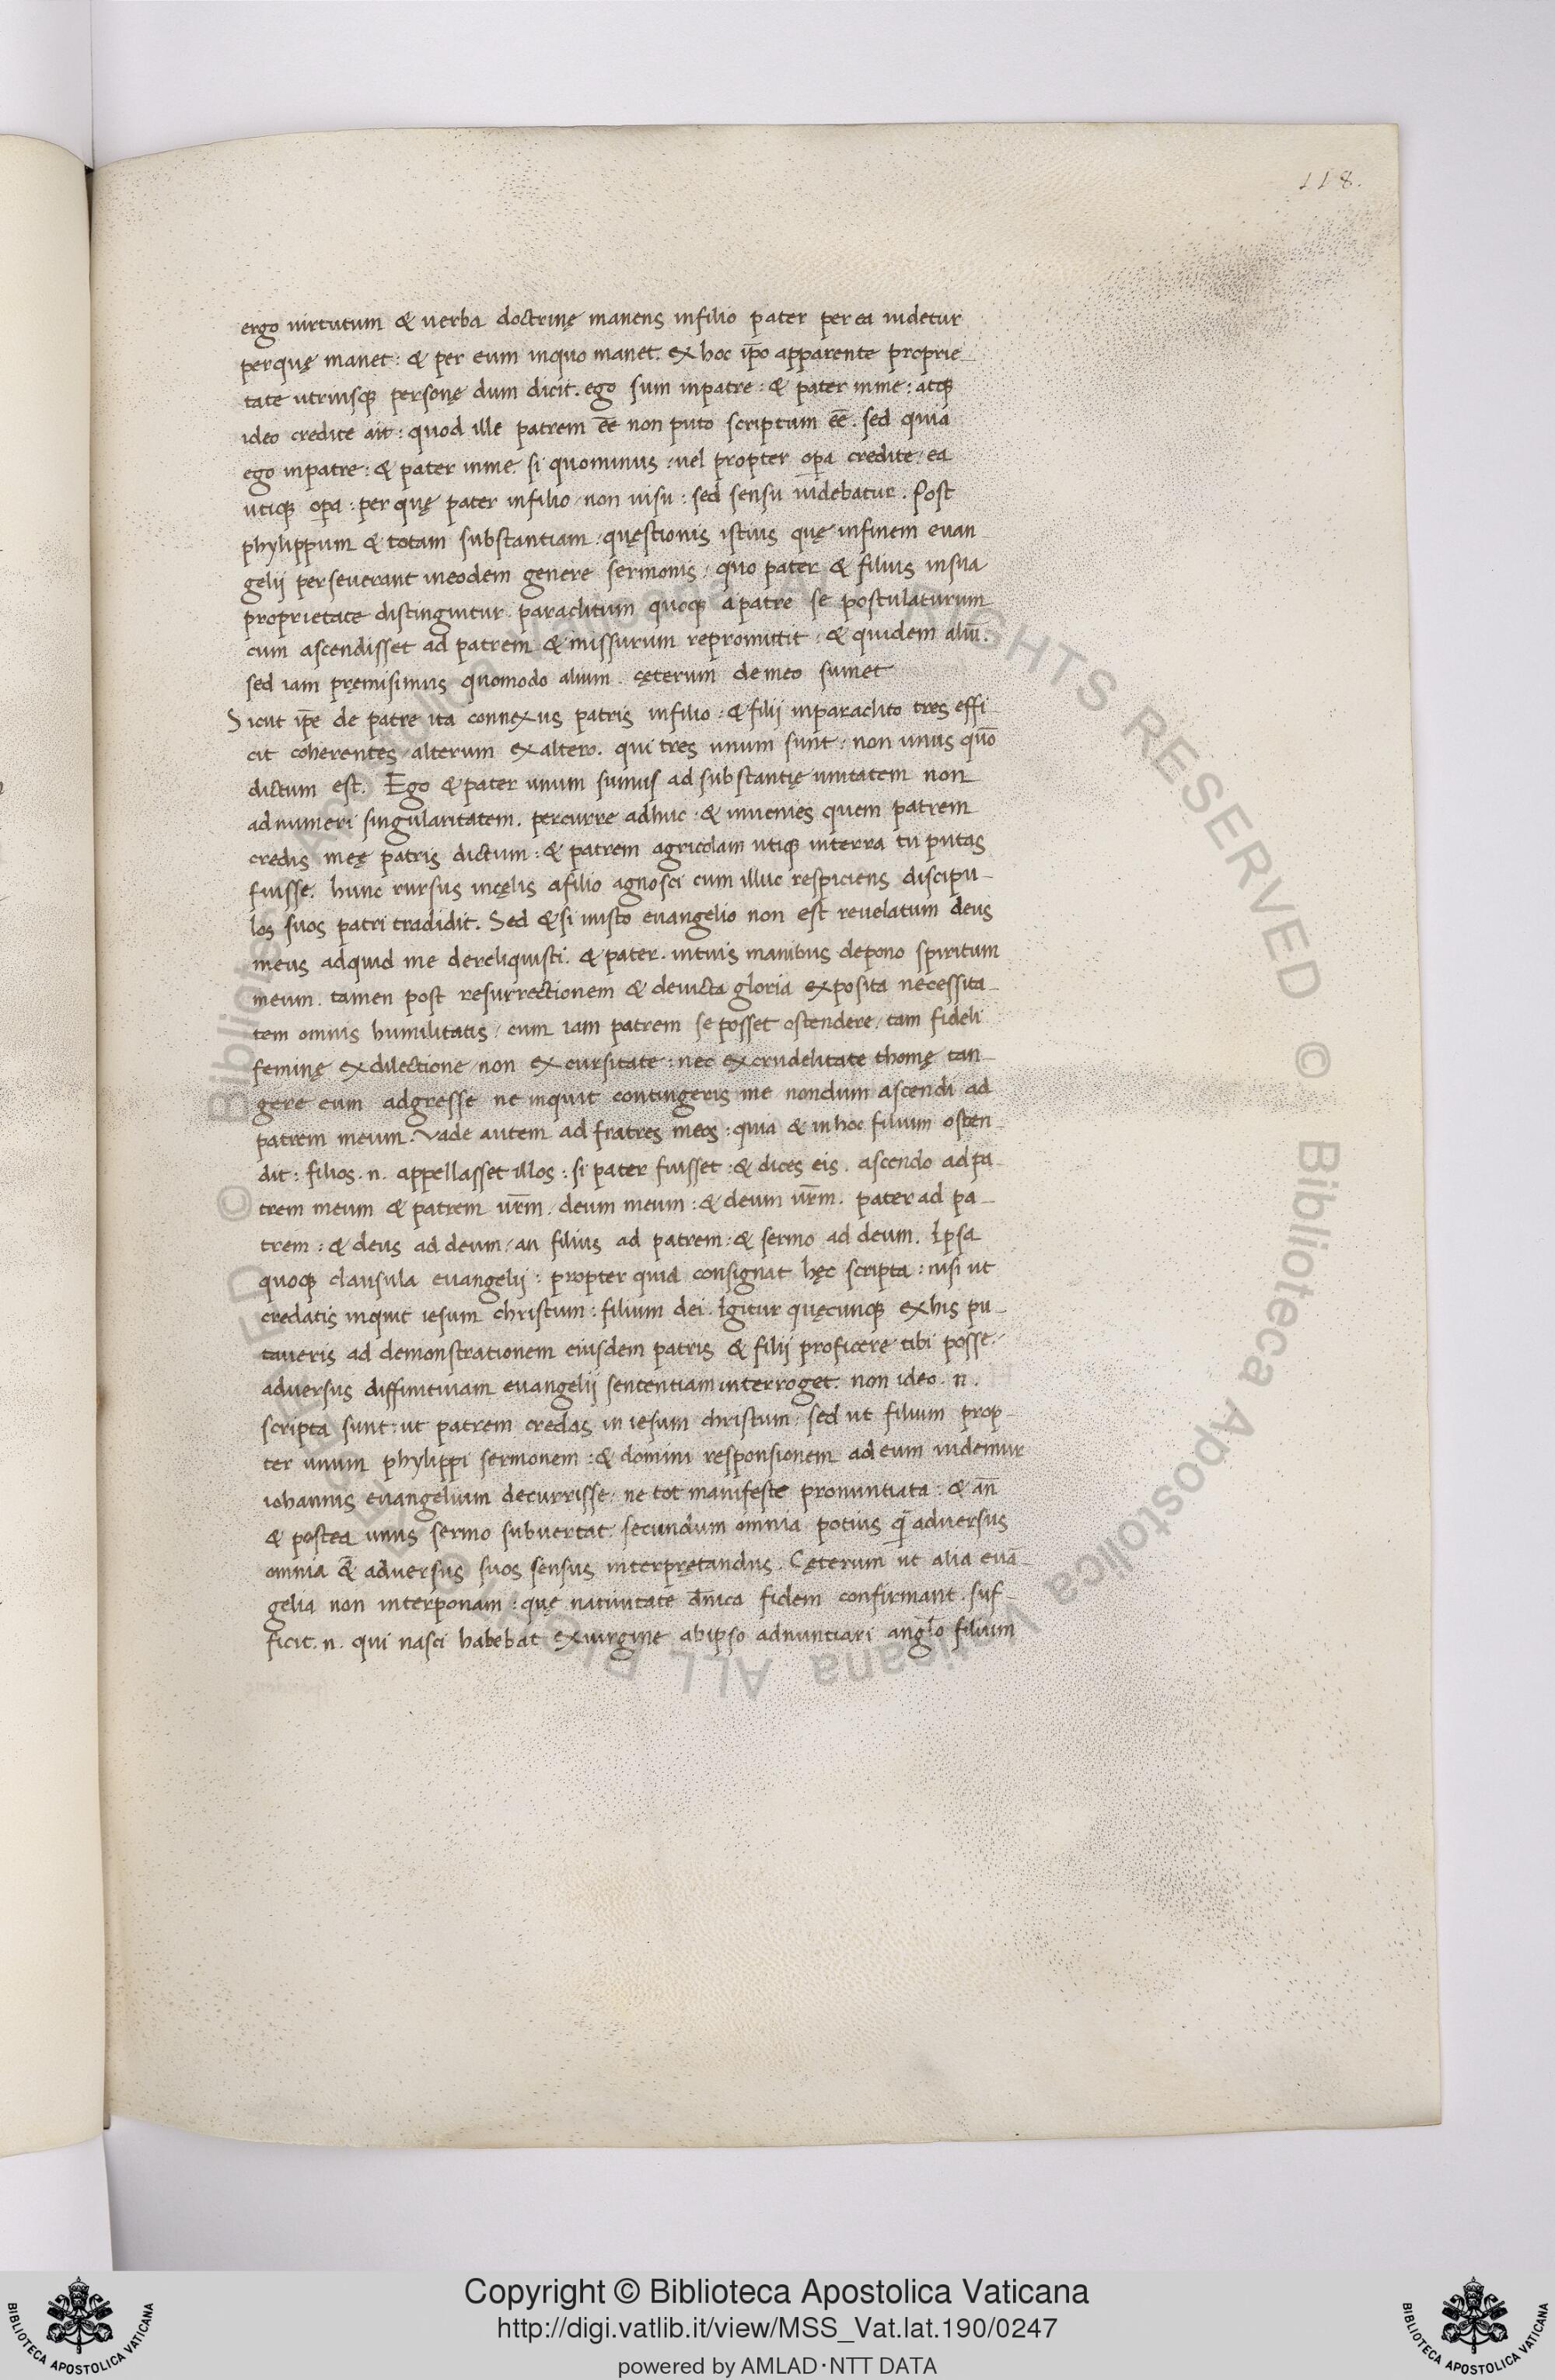 118.
ergo uirtutum & uerba doctrinę manens infilio pater per ea uidetur
perquę manet: & per eum inquo manet. ex hoc ip̄o apparente proprie
tate utriusq; personę dum dicit. ego sum inpatre: & pater inme: atq;
ideo credite ait: quod ille patrem eē non puto scriptum eē. sed quia
ego inpatre: & pater inme. si quominus: uel propter op̄a credite. ea
utiq; op̄a: per quę pater infilio non uisu: sed sensu uidebatur. Post
phylippum & totam substantiam quęstionis istius quę infinem euan
gelij perseuerant ineodem genere sermonis: quo pater & filius insua
proprietate distinguitur paraclitum quoq; apatre se postulaturum
cum ascendisset ad patrem & missurum repromittit: & quidem aliū.
sed iam pręmisimus quomodo alium. cęterum demeo sumet
Sicut ip̄e de patre ita connexus patris infilio: & filij inparaclito tres effi
cit coherentes alterum exaltero. qui tres unum sunt: non unus quō
dictum est. Ego & pater unum sumus ad substantię unitatem non
ad numeri singularitatem. percurre adhuc: & inuenies quem patrem
credis meę patris dictum: & patrem agricolam utiq; interra tu putas
fuisse. hunc rursus incęlis afilio agnosci cum illuc respiciens discipu-
los suos patri tradidit. Sed & si inisto euangelio non est reuelatum deus
meus adquid me dereliquisti. & pater. intuis manibus depono spiritum
meum. tamen post resurrectionem & deuicta gloria exposita necessita-
tem omnis humilitatis cum iam patrem se posset ostendere tam fideli
feminę exdilectione non ex cursitate: nec excrudelitate thomę tan-
gere eum adgresse ne inquit contingeris me nondum ascendi ad
patrem meum. Vade autem ad fratres meos: quia & inhoc filium osten-
dit: filios. n. appellasset illos: si pater fuisset: & dices eis. ascendo ad pa-
trem meum & patrem ur̄m. deum meum: & deum ur̄m. pater ad pa-
trem: & deus ad deum, an filius ad patrem: & sermo ad deum. Ipsa
quoq; clausula euangelij: propter quid consignat hęc scripta: nisi ut
credatis inquit iesum christum: filium dei. Igitur quęcunq; exhis pu-
taueris ad demonstrationem eiusdem patris & filij proficere tibi posse
aduersus diffinitiuam euangelij sententiam interroget. non ideo. n.
scripta sunt: ut patrem credas in iesum christum: sed ut filium prop-
ter unum phylippi sermonem: & domini responsionem adeum uidemur
iohannis euangelium decurrisse. ne tot manifeste pronuntiata: & an̄
& postea unus sermo subuertat. secundum omnia potius q̄ aduersus
omnia & aduersus suos sensus interprętandus. Cęterum ut alia euā
gelia non interponam: quę natiuitate dn̄ica fidem confirmant. suf-
ficit. n. qui nasci habebat exuirgine abipso adnuntiari angl̄o filium
Copyright © Biblioteca Apostolica Vaticana
http://digi.vatlib.it/view/MSS_Vat.lat.190/0247
powered by AMLAD·NTT DATA
BIBLIOTECA APOSTOLICA VATICANA
BIBLIOTECA APOSTOLICA VATICANA